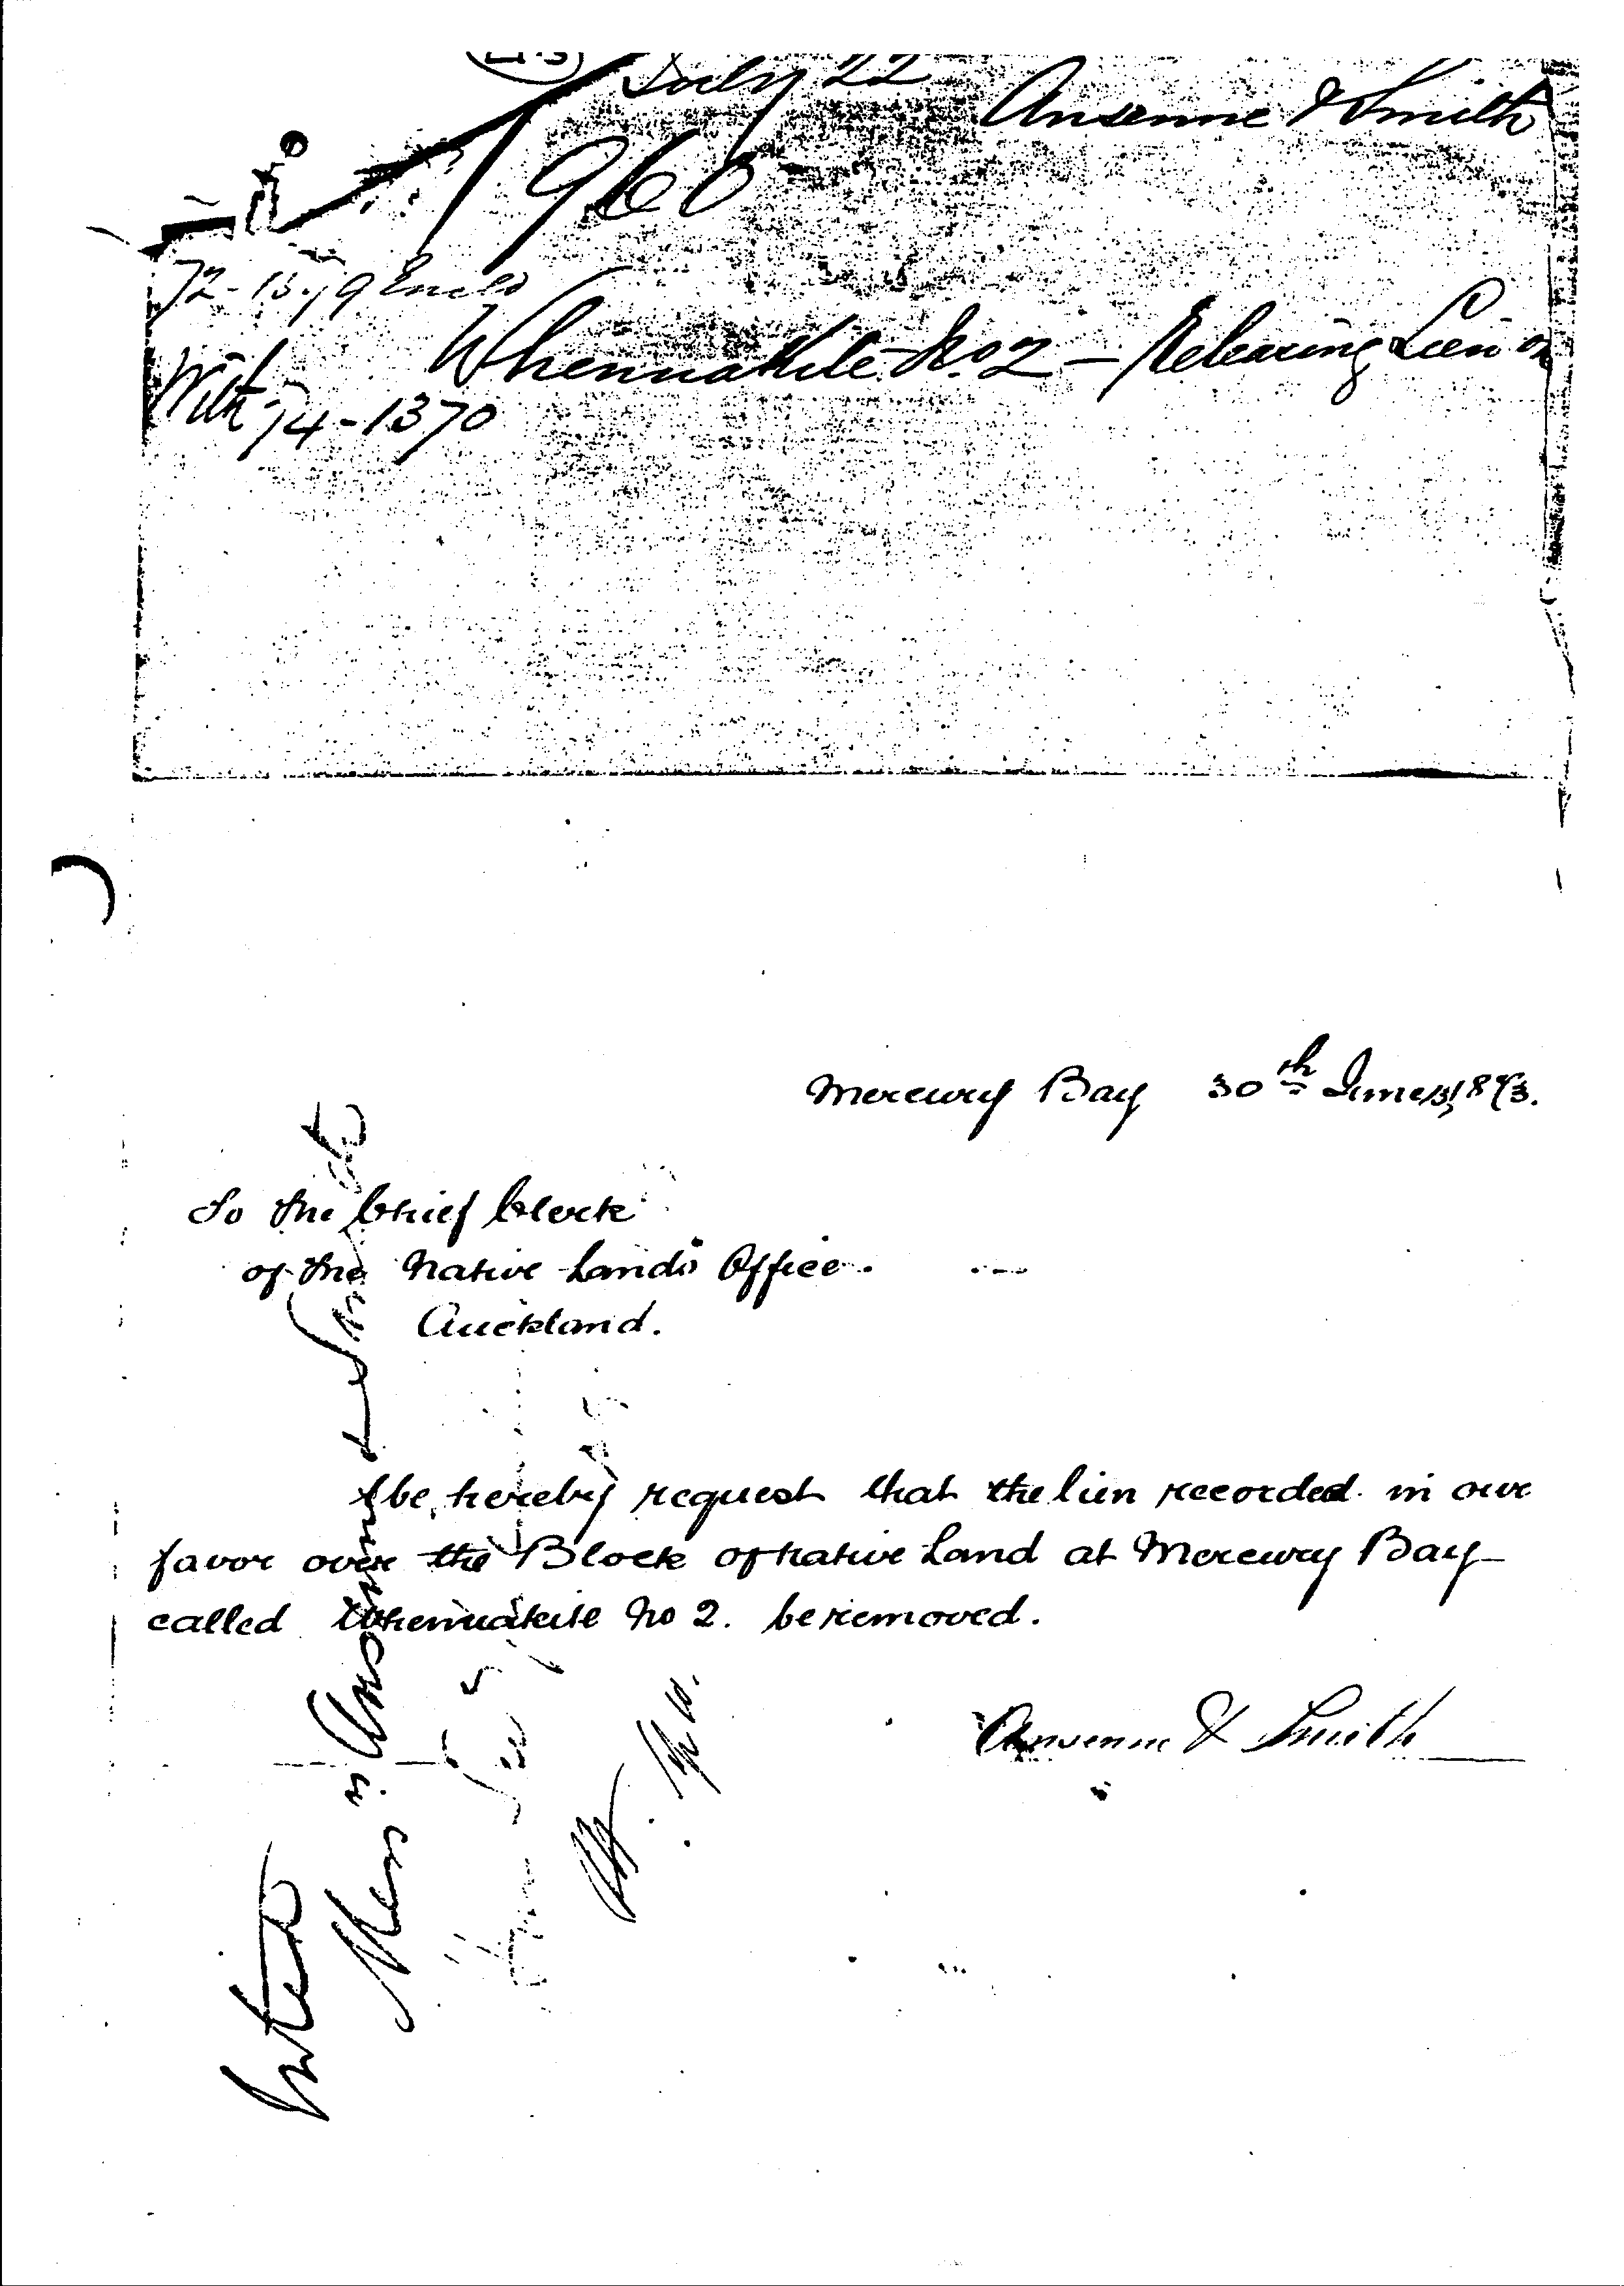 July 22
Ansenne & Smith
960
Whenuakite No. 2 - Releasing Lien on
With 74-1370
Mercury Bay 30th June, 1873.
To the Chief Clerk
of the Native Lands Office.
Auckland.
We hereby request that the lien recorded in our
favor over the Block of native Land at Mercury Bay
called Whenuakite No 2. be removed.
Ansenne & Smith